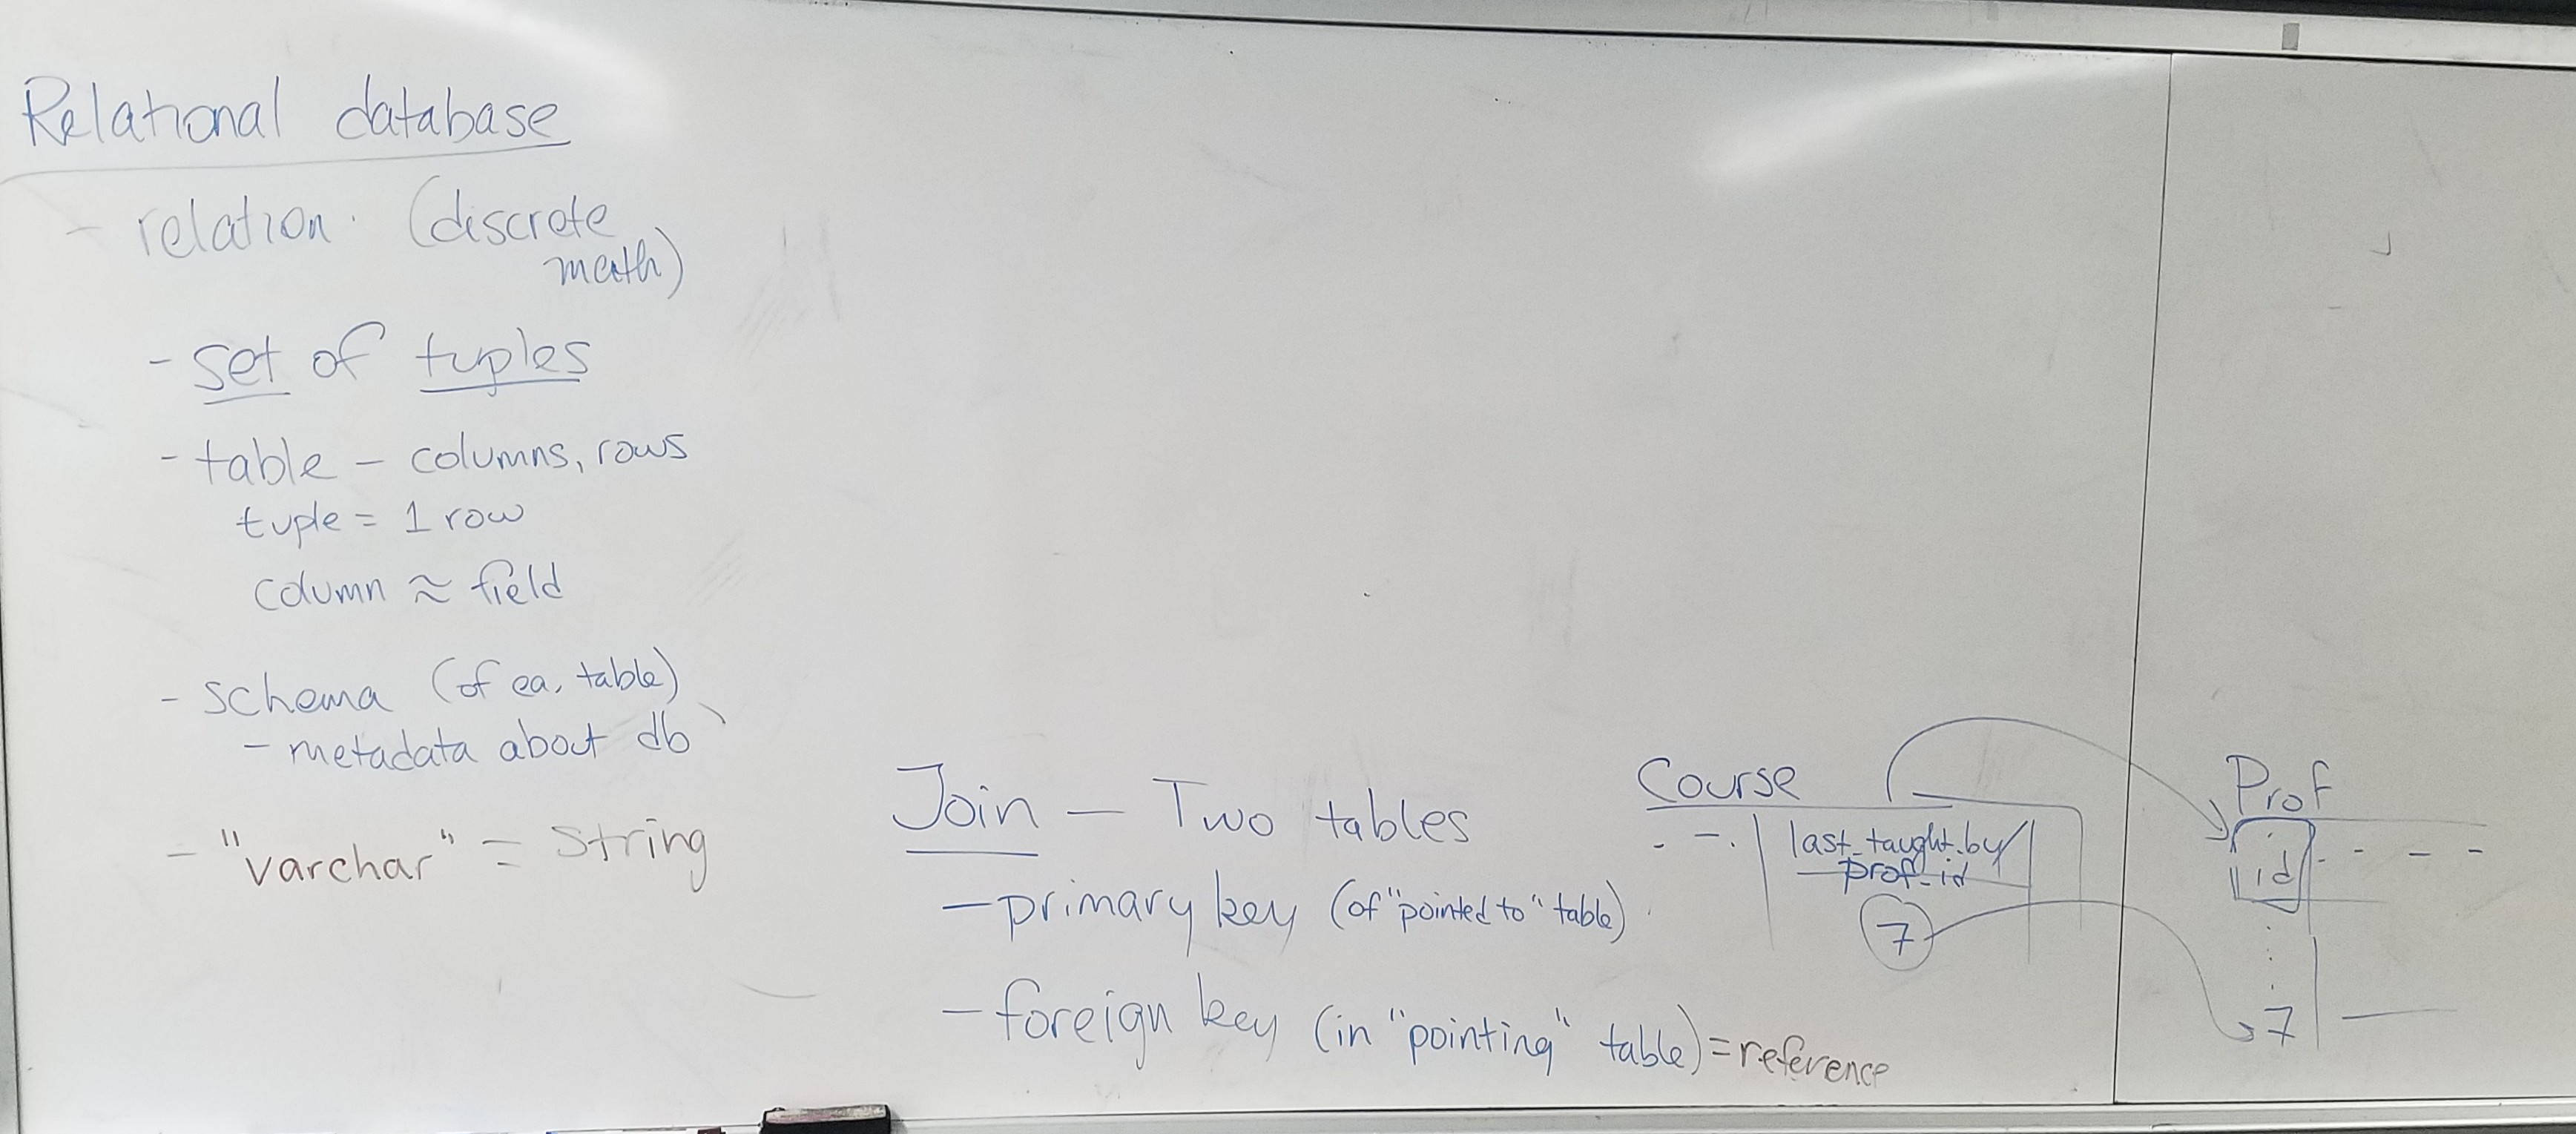 Relational database
- relation. (discrete
math)
- set of tuples
- table - columns, rows
tuple = 1 row
column ≈ field
- schema (of ea. table)
- metadata about db
- "varchar" = String
Join - Two tables
- primary key (of "pointed to" table)
- foreign key (in "pointing" table) = reference
Course
last_taught_by
prof_id
7
Prof
id
7